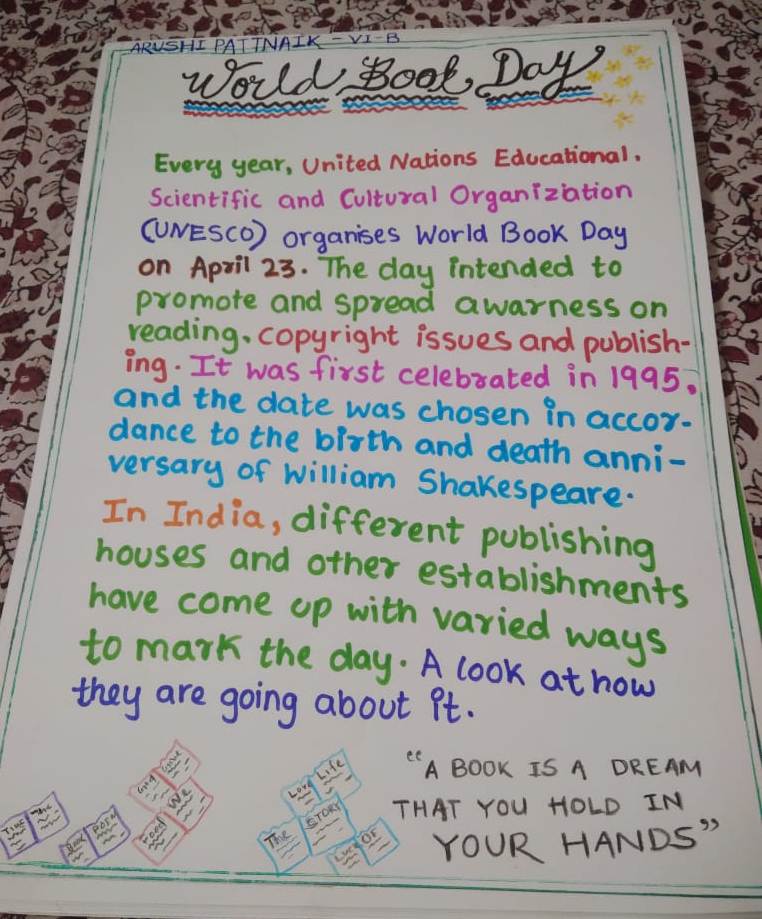 ARUSHI PATTNAIK - VI-B
World Book Day
Every year, United Nations Educational,
Scientific and Cultural Organiziation
(UNESCO) organises World Book Day
on April 23. The day intended to
promote and spread awarness on
reading, copyright issues and publish-
ing. It was first celebrated in 1995,
and the date was chosen in accor-
dance to the birth and death anni-
versary of William Shakespeare.
In India, different publishing
houses and other establishments
have come up with varied ways
to mark the day. A look at how
they are going about it.
"A BOOK IS A DREAM
THAT YOU HOLD IN
YOUR HANDS"
Time The
Book POEM
God Give
Food We
Love Life
The STORY
OF